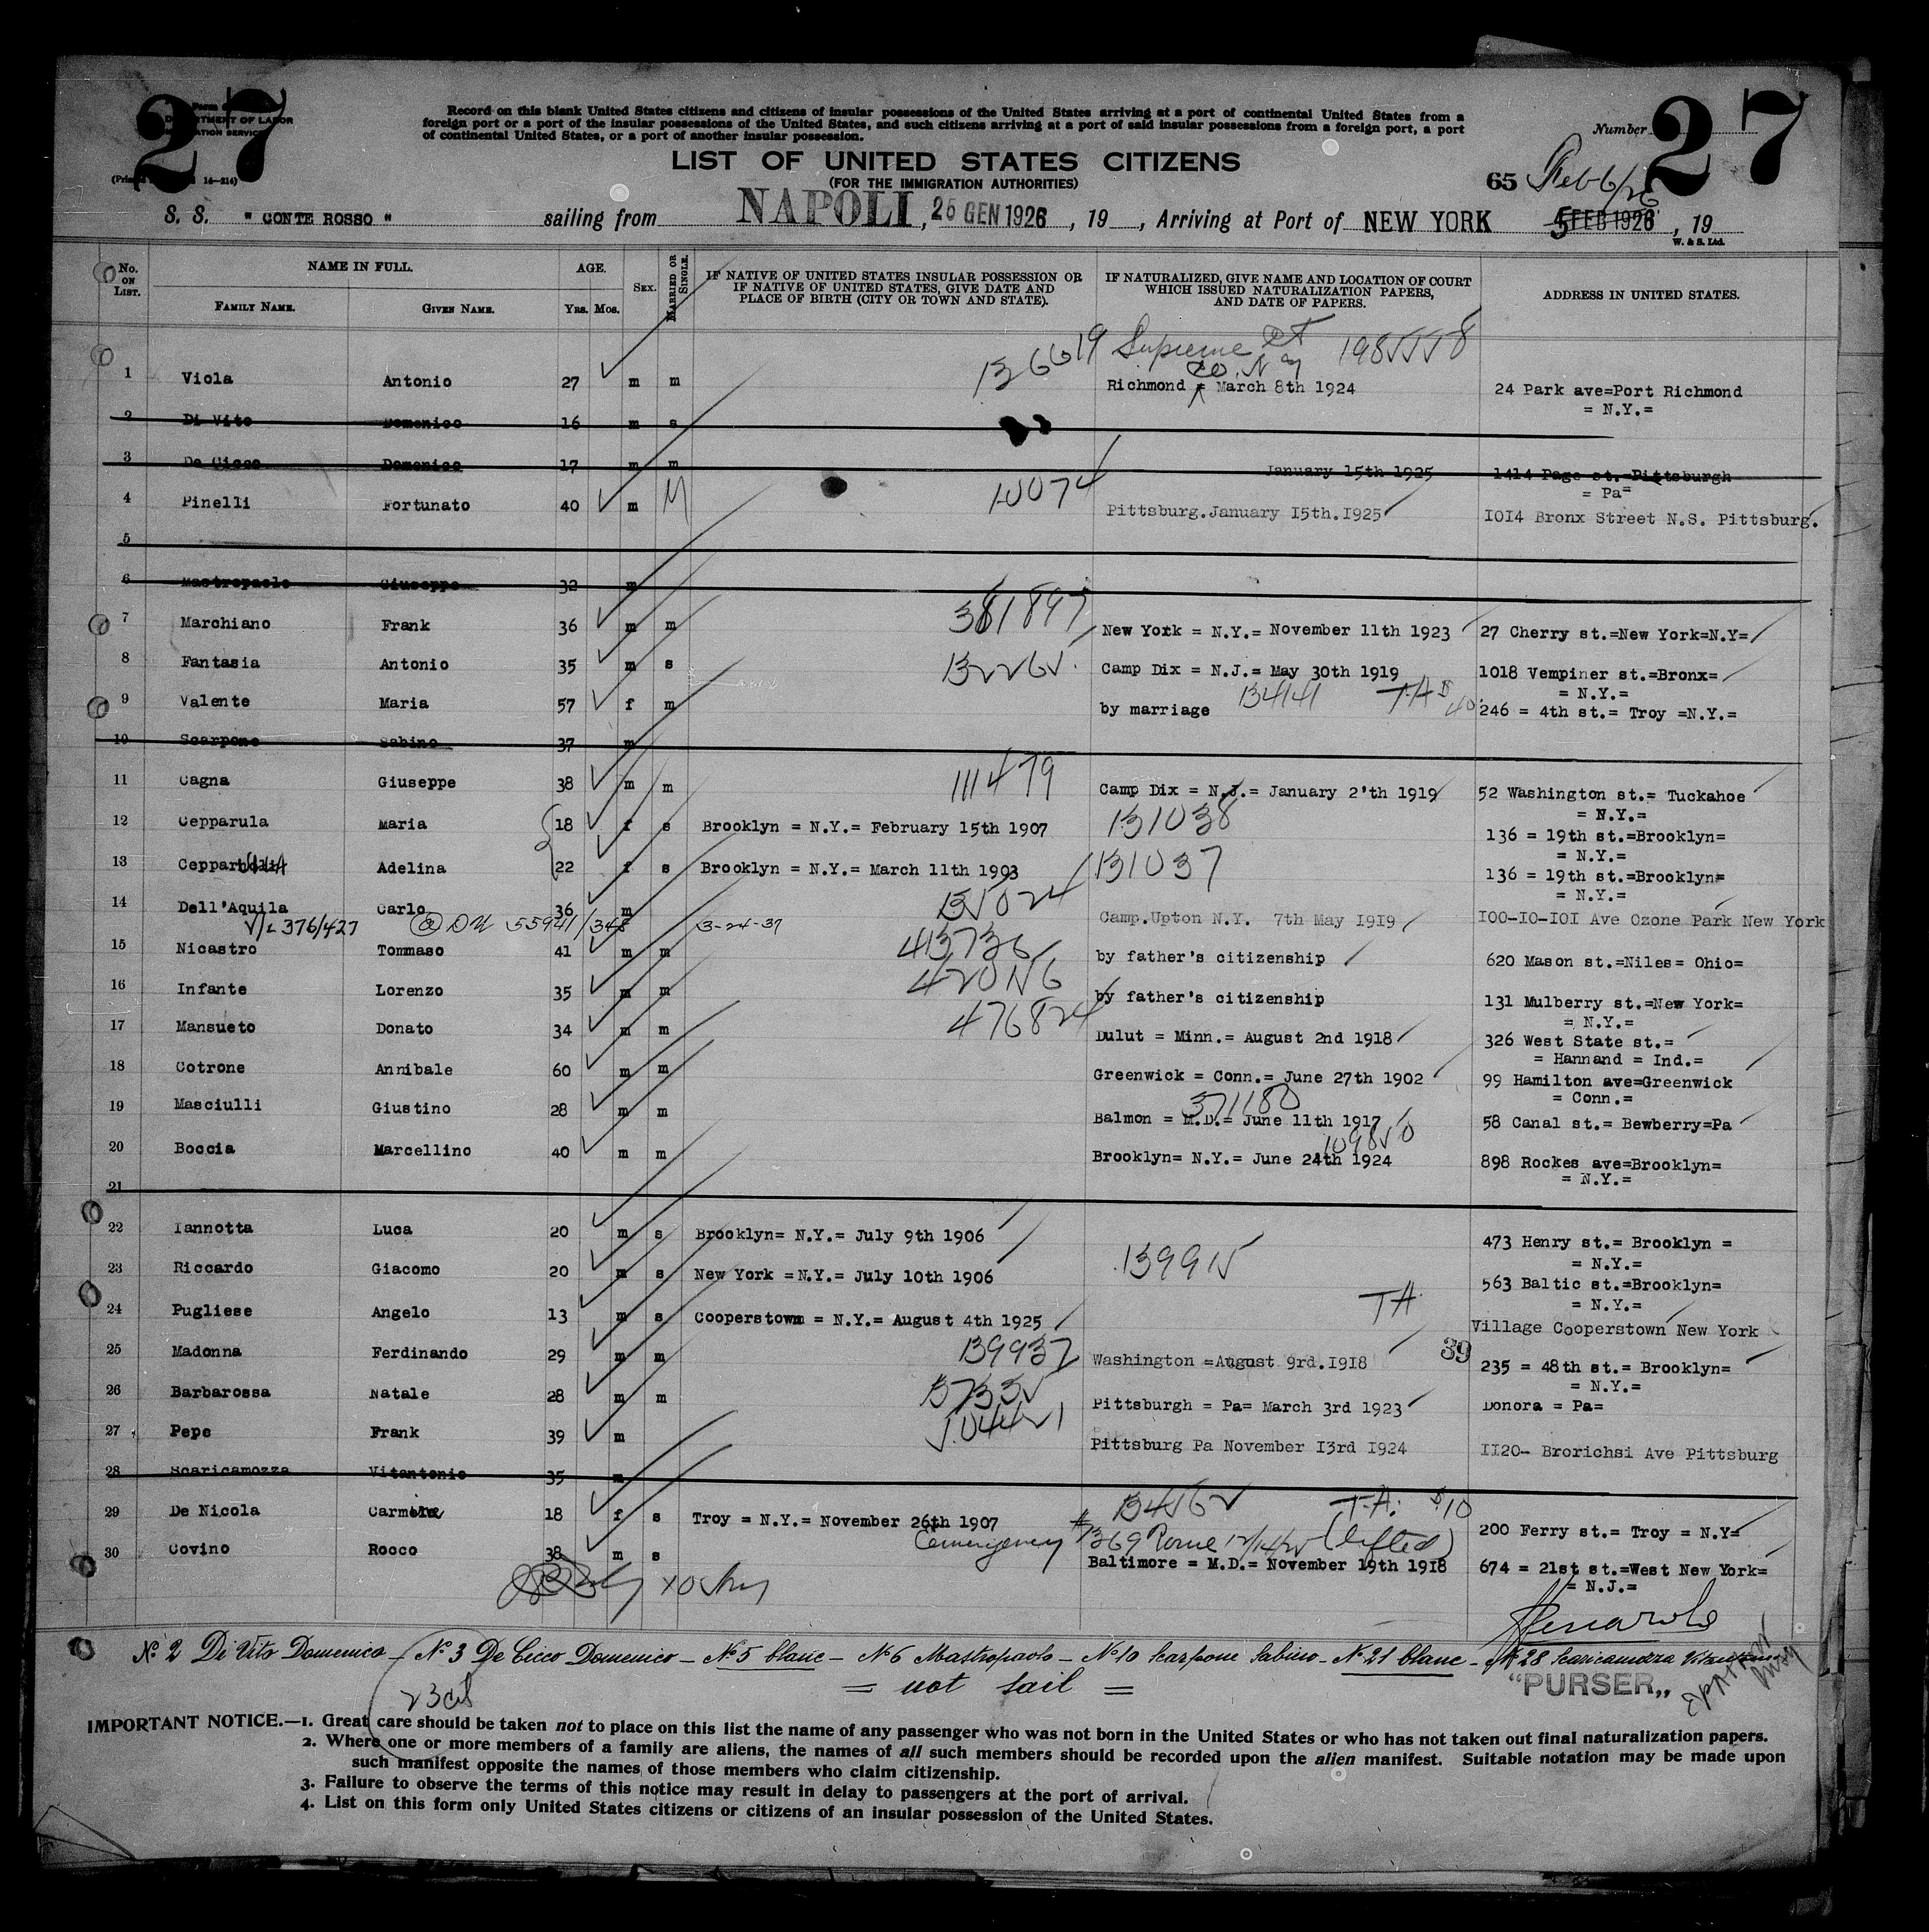 27
27
Form
DEPARTMENT OF LABOR
IMMIGRATION SERVICE
14—214)
Record on this blank United States citizens and citizens of insular possessions of the United States arriving at a port of continental United States from a
foreign port or a port of the insular possessions of the United States, and such citizens arriving at a port of said insular possessions from a foreign port, a port
of continental United States, or a port of another insular possession.
Number
LIST OF UNITED STATES CITIZENS
(FOR THE IMMIGRATION AUTHORITIES)
65 Feb 6/26
S. S. " CONTE ROSSO " sailing from NAPOLI, 26 GEN 1926, 19 , Arriving at Port of NEW YORK 5 FEB 1926, 19
W. & S. Ltd.
No. ON LIST. NAME IN FULL. FAMILY NAME. GIVEN NAME. AGE. YRS. MOS. SEX. MARRIED OR SINGLE. IF NATIVE OF UNITED STATES INSULAR POSSESSION OR IF NATIVE OF UNITED STATES, GIVE DATE AND PLACE OF BIRTH (CITY OR TOWN AND STATE). IF NATURALIZED, GIVE NAME AND LOCATION OF COURT WHICH ISSUED NATURALIZATION PAPERS, AND DATE OF PAPERS. ADDRESS IN UNITED STATES.
136619 Supreme Ct 1985558
Co. N y
1 Viola Antonio 27 m m Richmond = March 8th 1924 24 Park ave=Port Richmond
= N.Y.=
2 Di Vito Domenico 16 m s
3 De Cicco Domenico 17 m m January 15th 1925 1414 Page st.=Pittsburgh
= Pa=
4 Pinelli Fortunato 40 m M 10074 Pittsburg.January I5th.I925 IOI4 Bronx Street N.S. Pittsburg.
5
6 Mastropaolo Giuseppe 32 m
7 Marchiano Frank 36 m m 381897 New York = N.Y.= November 11th 1923 27 Cherry st.=New York=N.Y=
8 Fantasia Antonio 35 m s 132265 Camp Dix = N.J.= May 30th 1919 1018 Vempiner st.=Bronx=
= N.Y.=
9 Valente Maria 57 f m by marriage 134141 T.A 246 = 4th st.= Troy =N.Y.=
10 Scarpone Sabino 37 m
11 Cagna Giuseppe 38 m m 111479 Camp Dix = N.J.= January 2'th 1919 52 Washington st.= Tuckahoe
= N.Y.=
12 Cepparula Maria 18 f s Brooklyn = N.Y.= February 15th 1907 131038 136 = 19th st.=Brooklyn=
= N.Y.=
13 Cepparula Adelina 22 f s Brooklyn = N.Y.= March 11th 1903 131037 136 = 19th st.=Brooklyn=
= N.Y.=
14 Dell'Aquila Carlo 36 m 135024 Camp.Upton N.Y. 7th May I9I9 IOO-IO-IOI Ave Ozone Park New York
V/L 376/427 55941/348 3-24-37
15 Nicastro Tommaso 41 m m 413736 by father's citizenship 620 Mason st.=Niles= Ohio=
16 Infante Lorenzo 35 m m by father's citizenship 131 Mulberry st.=New York=
= N.Y.=
17 Mansueto Donato 34 m m 476824 Dulut = Minn.= August 2nd 1918 326 West State st.=
= Hannand = Ind.=
18 Cotrone Annibale 60 m m Greenwick = Conn.= June 27th 1902 99 Hamilton ave=Greenwick
= Conn.=
371180
19 Masciulli Giustino 28 m m Balmon = M.D.= June 11th 1917 58 Canal st.= Bewberry=Pa
109850
20 Boccia Marcellino 40 m m Brooklyn= N.Y.= June 24th 1924 898 Rockes ave=Brooklyn=
= N.Y.=
21
22 Iannotta Luca 20 m s Brooklyn= N.Y.= July 9th 1906 473 Henry st.= Brooklyn =
= N.Y.=
23 Riccardo Giacomo 20 m s New York =N.Y.= July 10th 1906 139915 563 Baltic st.=Brooklyn=
= N.Y.=
24 Pugliese Angelo 13 m s Cooperstown = N.Y.= August 4th 1925 TA Village Cooperstown New York
25 Madonna Ferdinando 29 m m 139937 Washington =August 9rd.I9I8 39 235 = 48th st.= Brooklyn=
= N.Y.=
26 Barbarossa Natale 28 m m Pittsburgh = Pa= March 3rd 1923 Donora = Pa=
27 Pepe Frank 39 m Pittsburg Pa November I3rd I924 II20- Brorichsi Ave Pittsburg
28 Scaricamozza Vitantonio 35 m
134562 T-A: $10
29 De Nicola Carmela 18 f s Troy = N.Y.= November 26th 1907 200 Ferry st.= Troy = N.Y=
Emergency #1369 Rome 12/14/25 (lifted)
30 Covino Rocco 38 m s Baltimore = M.D.= November 19th 1918 674 = 21st st.=West New York=
= N.J.=
No 2 Di Vito Domenico - No 3 De Cicco Domenico - No 5 blanc - No 6 Mastropaolo - No 10 Scarpone Sabino - No 21 blanc - No 28 Scaricamozza Vitantonio
= not sail =
"PURSER„
IMPORTANT NOTICE.—1. Great care should be taken not to place on this list the name of any passenger who was not born in the United States or who has not taken out final naturalization papers.
2. Where one or more members of a family are aliens, the names of all such members should be recorded upon the alien manifest. Suitable notation may be made upon
such manifest opposite the names of those members who claim citizenship.
3. Failure to observe the terms of this notice may result in delay to passengers at the port of arrival.
4. List on this form only United States citizens or citizens of an insular possession of the United States.